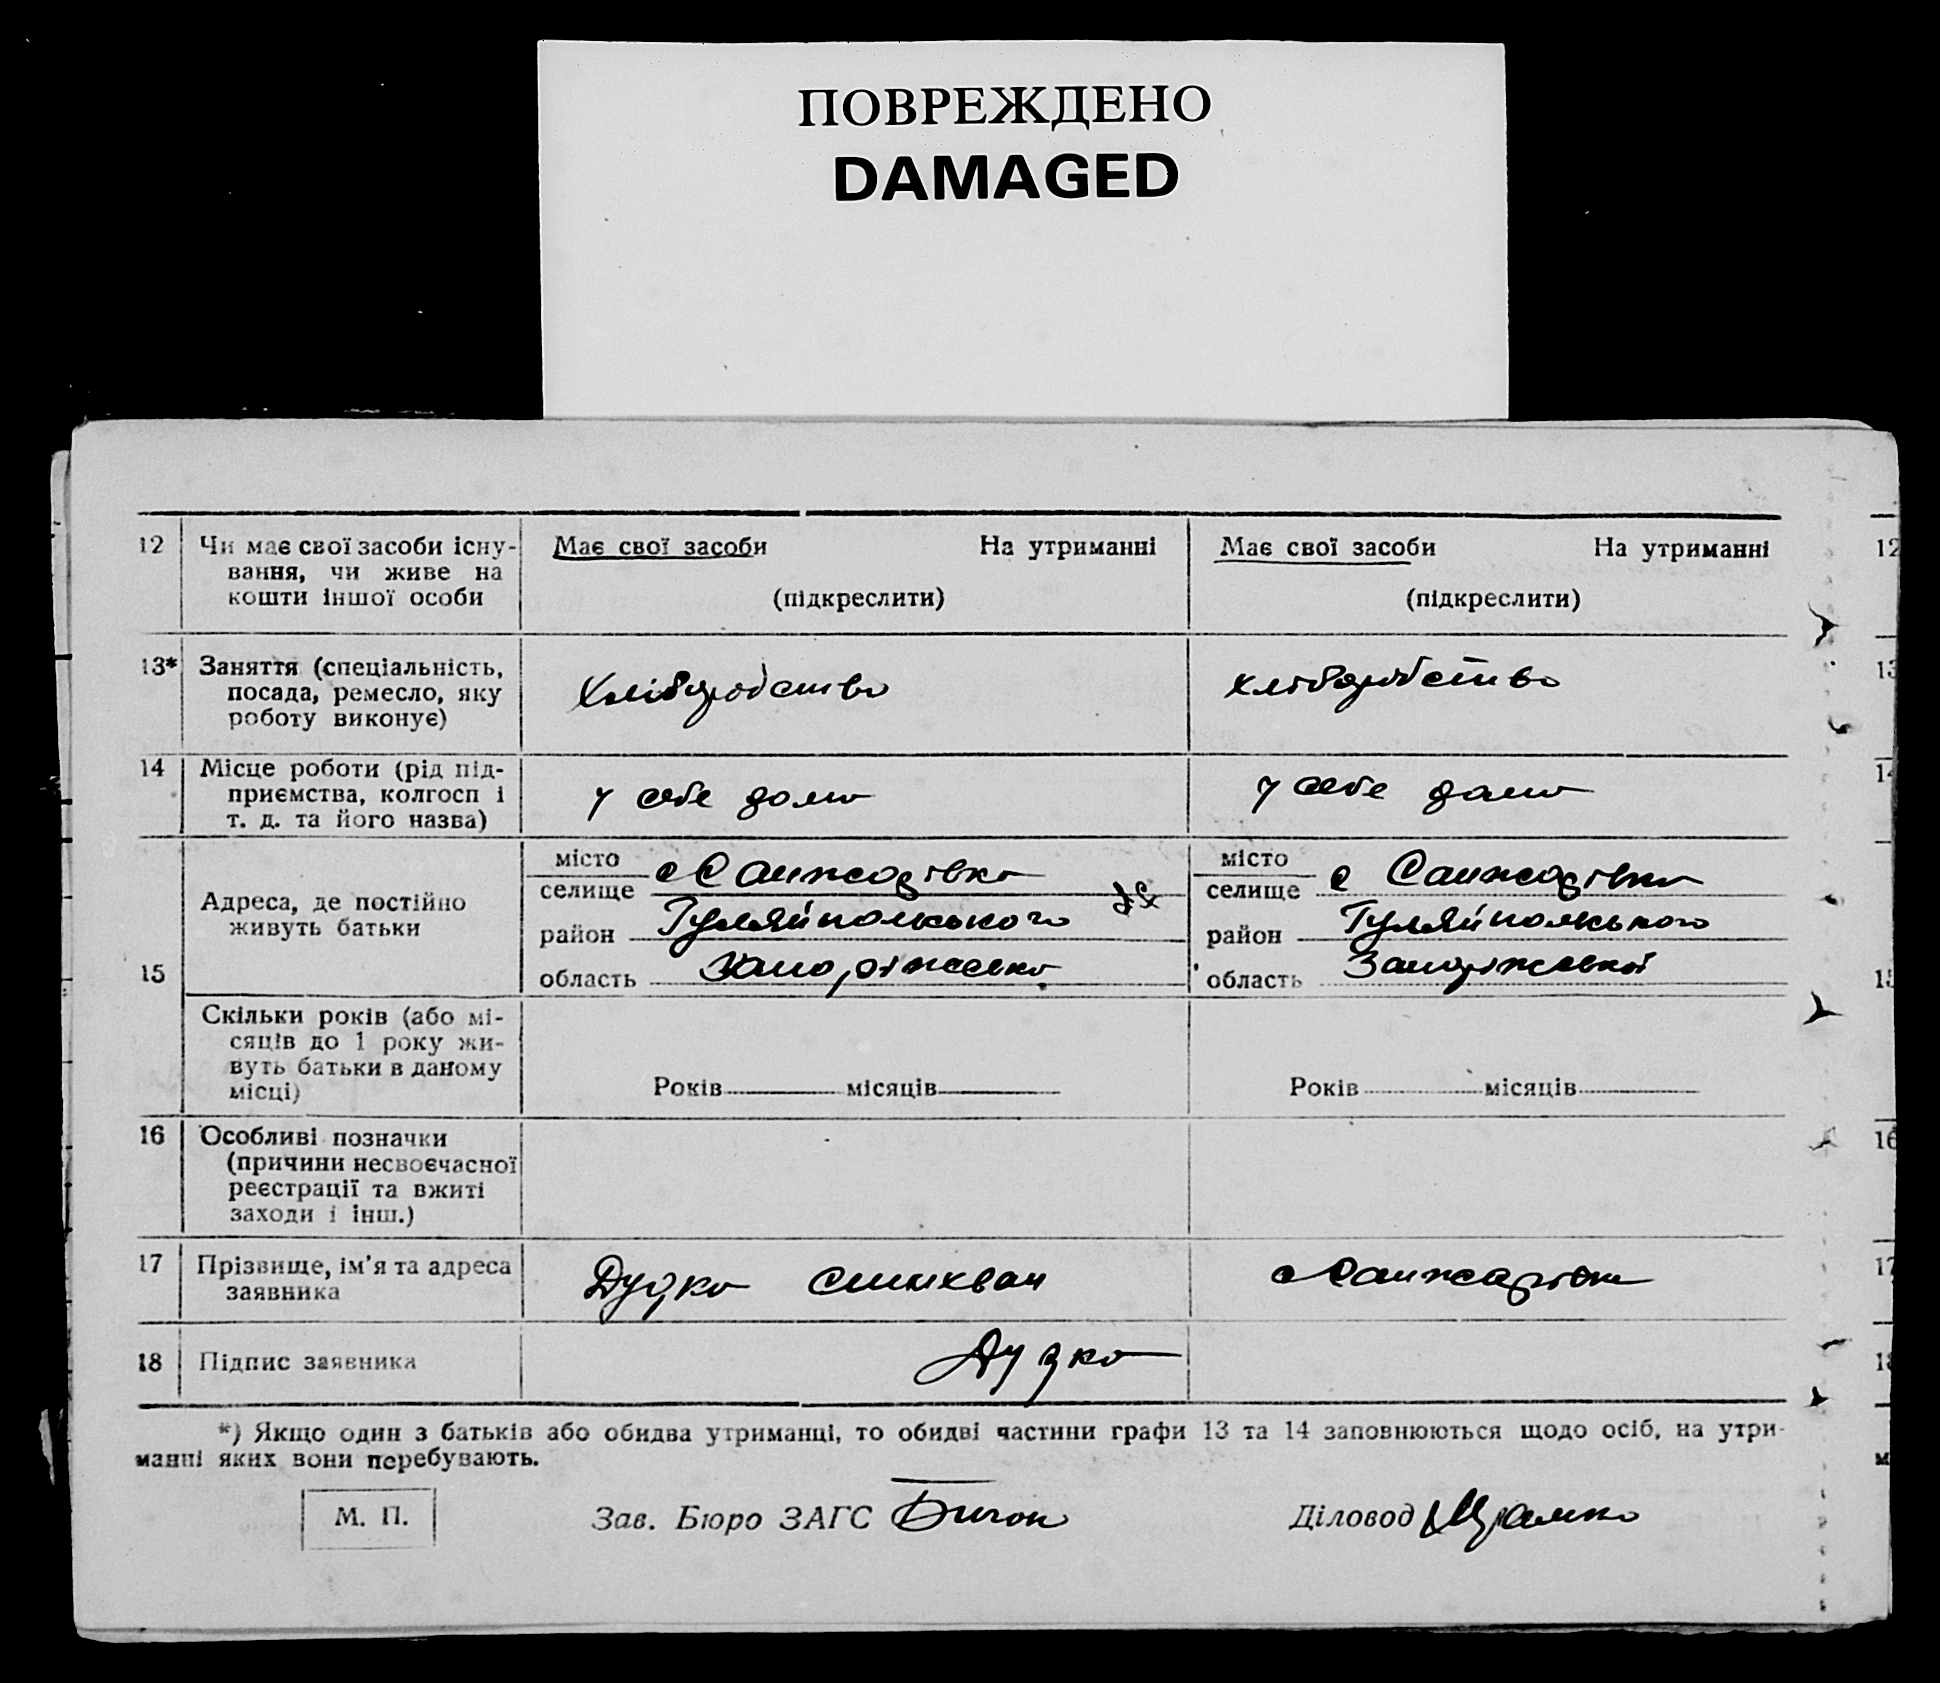 ПОВРЕЖДЕНО
DAMAGED
12 Чи має свої засоби існу- Має свої засоби На утриманні Має свої засоби На утриманні 12
вання, чи живе на
кошти іншої особи (підкреслити) (підкреслити)
13* Заняття (спеціальність, 13
посада, ремесло, яку хліборобство хліборобство
роботу виконує)
14 Місце роботи (рід під- 14
приємства, колгосп і у себе дома у себе дома
т. д. та його назва)
місто с Санжарівка місто с Санжарівка
селище селище
Адреса, де постійно
живуть батьки район Гуляйпольського район Гуляйпольського
15 область Запоріжська область Запоріжської 15
Скільки років (або мі-
сяців до 1 року жи-
вуть батьки в даному
місці) Років місяців Років місяців
16 Особливі позначки 16
(причини несвоєчасної
реєстрації та вжиті
заходи і інш.)
17 Прізвище, ім'я та адреса Дудко с Санжарівка 17
заявника
18 Підпис заявника Дудко 18
*) Якщо один з батьків або обидва утриманці, то обидві частини графи 13 та 14 заповнюються щодо осіб, на утри-
манні яких вони перебувають. м
М. П. Зав. Бюро ЗАГС Діловод